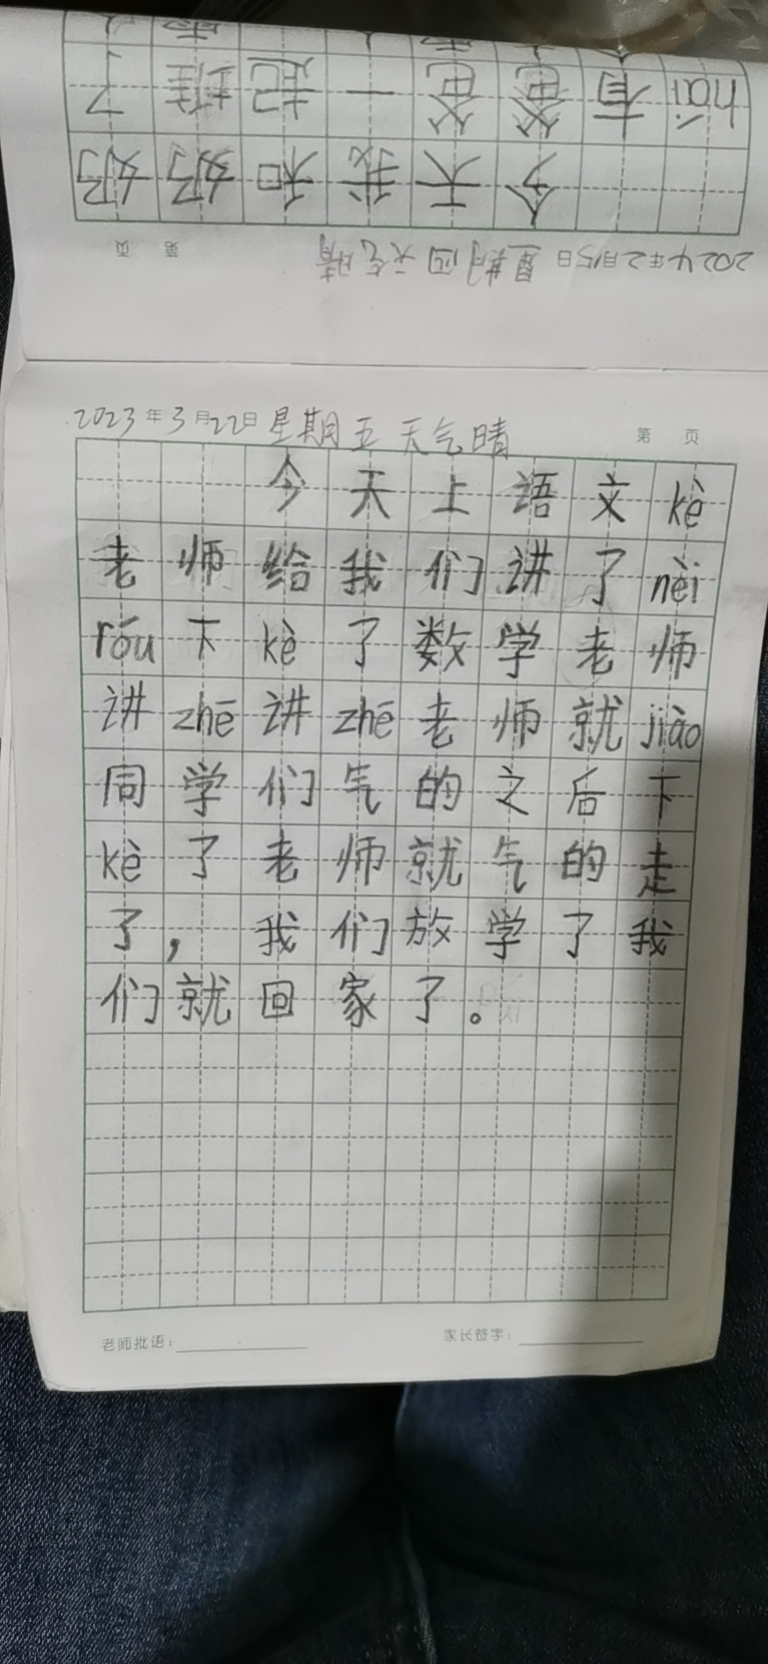 了 堆 起 一 爸 爸 有 hái
奶 奶 和 我 天 今
第 页
2024年2月15日 星期四 天气晴
2023年3月22日 星期五 天气晴 第 页
今天上语文kè
老师给我们讲了nèi
róu下kè了数学老师
讲zhē讲zhē老师就jiào
同学们气的之后下
kè了老师就气的走
了，我们放学了我
们就回家了。
老师批语：
家长签字：